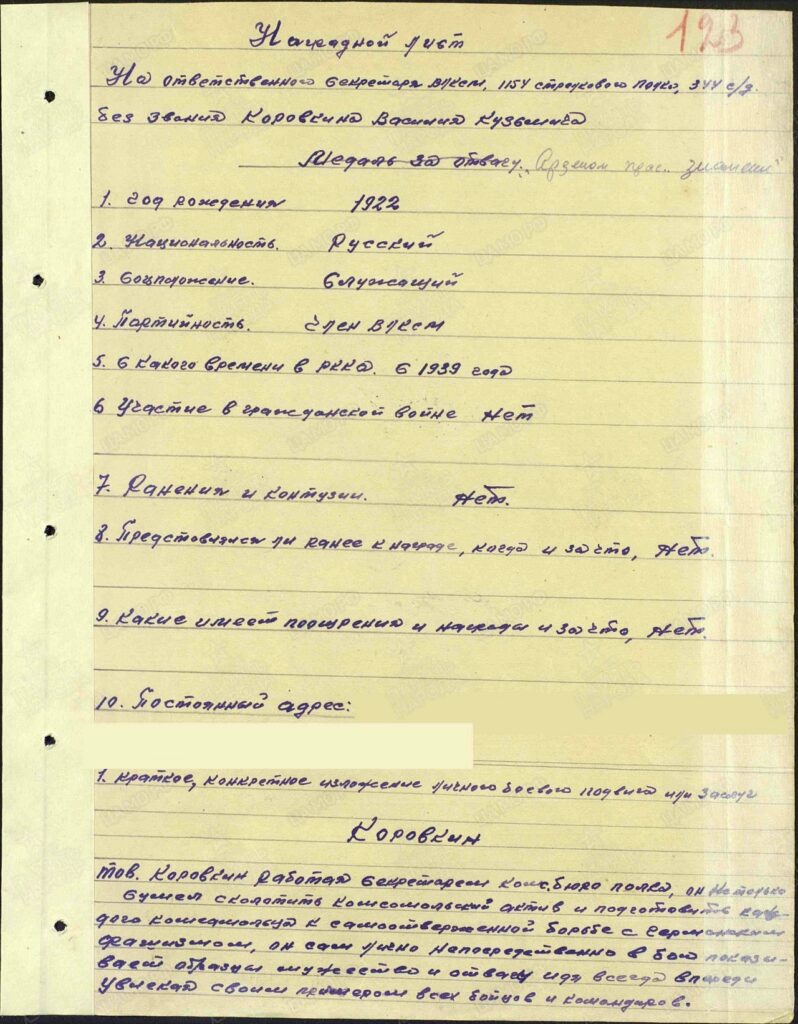 123
Наградной лист
На ответственного Секретаря ВЛКСМ, 1154 стрелкового полка, 344 с/д.
без звания Коровкина Василия Кузьмича
Медаль За отвагу. Орденом крас. знамени
1. Год рождения 1922
2. Национальность. Русский
3. Соцположение. Служащий
4. Партийность. Член ВЛКСМ
5. С какого времени в РККА. С 1939 года
6 Участие в гражданской войне Нет
7. Ранения и контузии. Нет.
8. Представлялся ли ранее к награде, когда и за что, Нет.
9. Какие имеет поощрения и награды и за что, Нет.
10. Постоянный адрес:
1. Краткое, конкретное изложение личного боевого подвига или заслуг
Коровкин
тов. Коровкин работая Секретарем комс.бюро полка, он не только
сумел сколотить комсомольский актив и подготовить каж-
дого комсомольца к самоотверженной борьбе с Германским
фашизмом, он сам лично непосредственно в бою показы-
вает образцы мужество и отваги идя всегда впереди
увлекая своим примером всех бойцов и командиров.